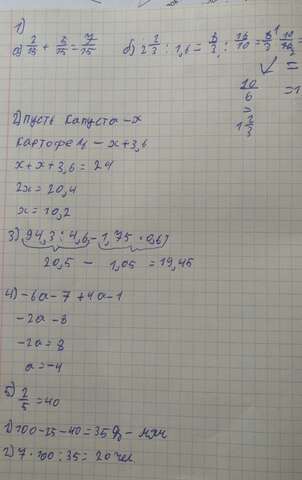 1)
а) 2/15 + 5/15 = 7/15 б) 2 2/3 : 1,6 = 8/3 : 16/10 = 8/3 · 10/16 =
10/6 = 1
=
1 2/3
2) Пусть капуста - x
Картофель - x + 3,6
x + x + 3,6 = 24
2x = 20,4
x = 10,2
3) (94,3 : 4,6 - 1,75 · 0,6)
20,5 - 1,05 = 19,45
4) -6a - 7 + 4a - 1
-2a - 8
-2a = 8
a = -4
5) 2/5 = 40
1) 100 - 25 - 40 = 35
2) 7 · 100 : 35 = 20 чел